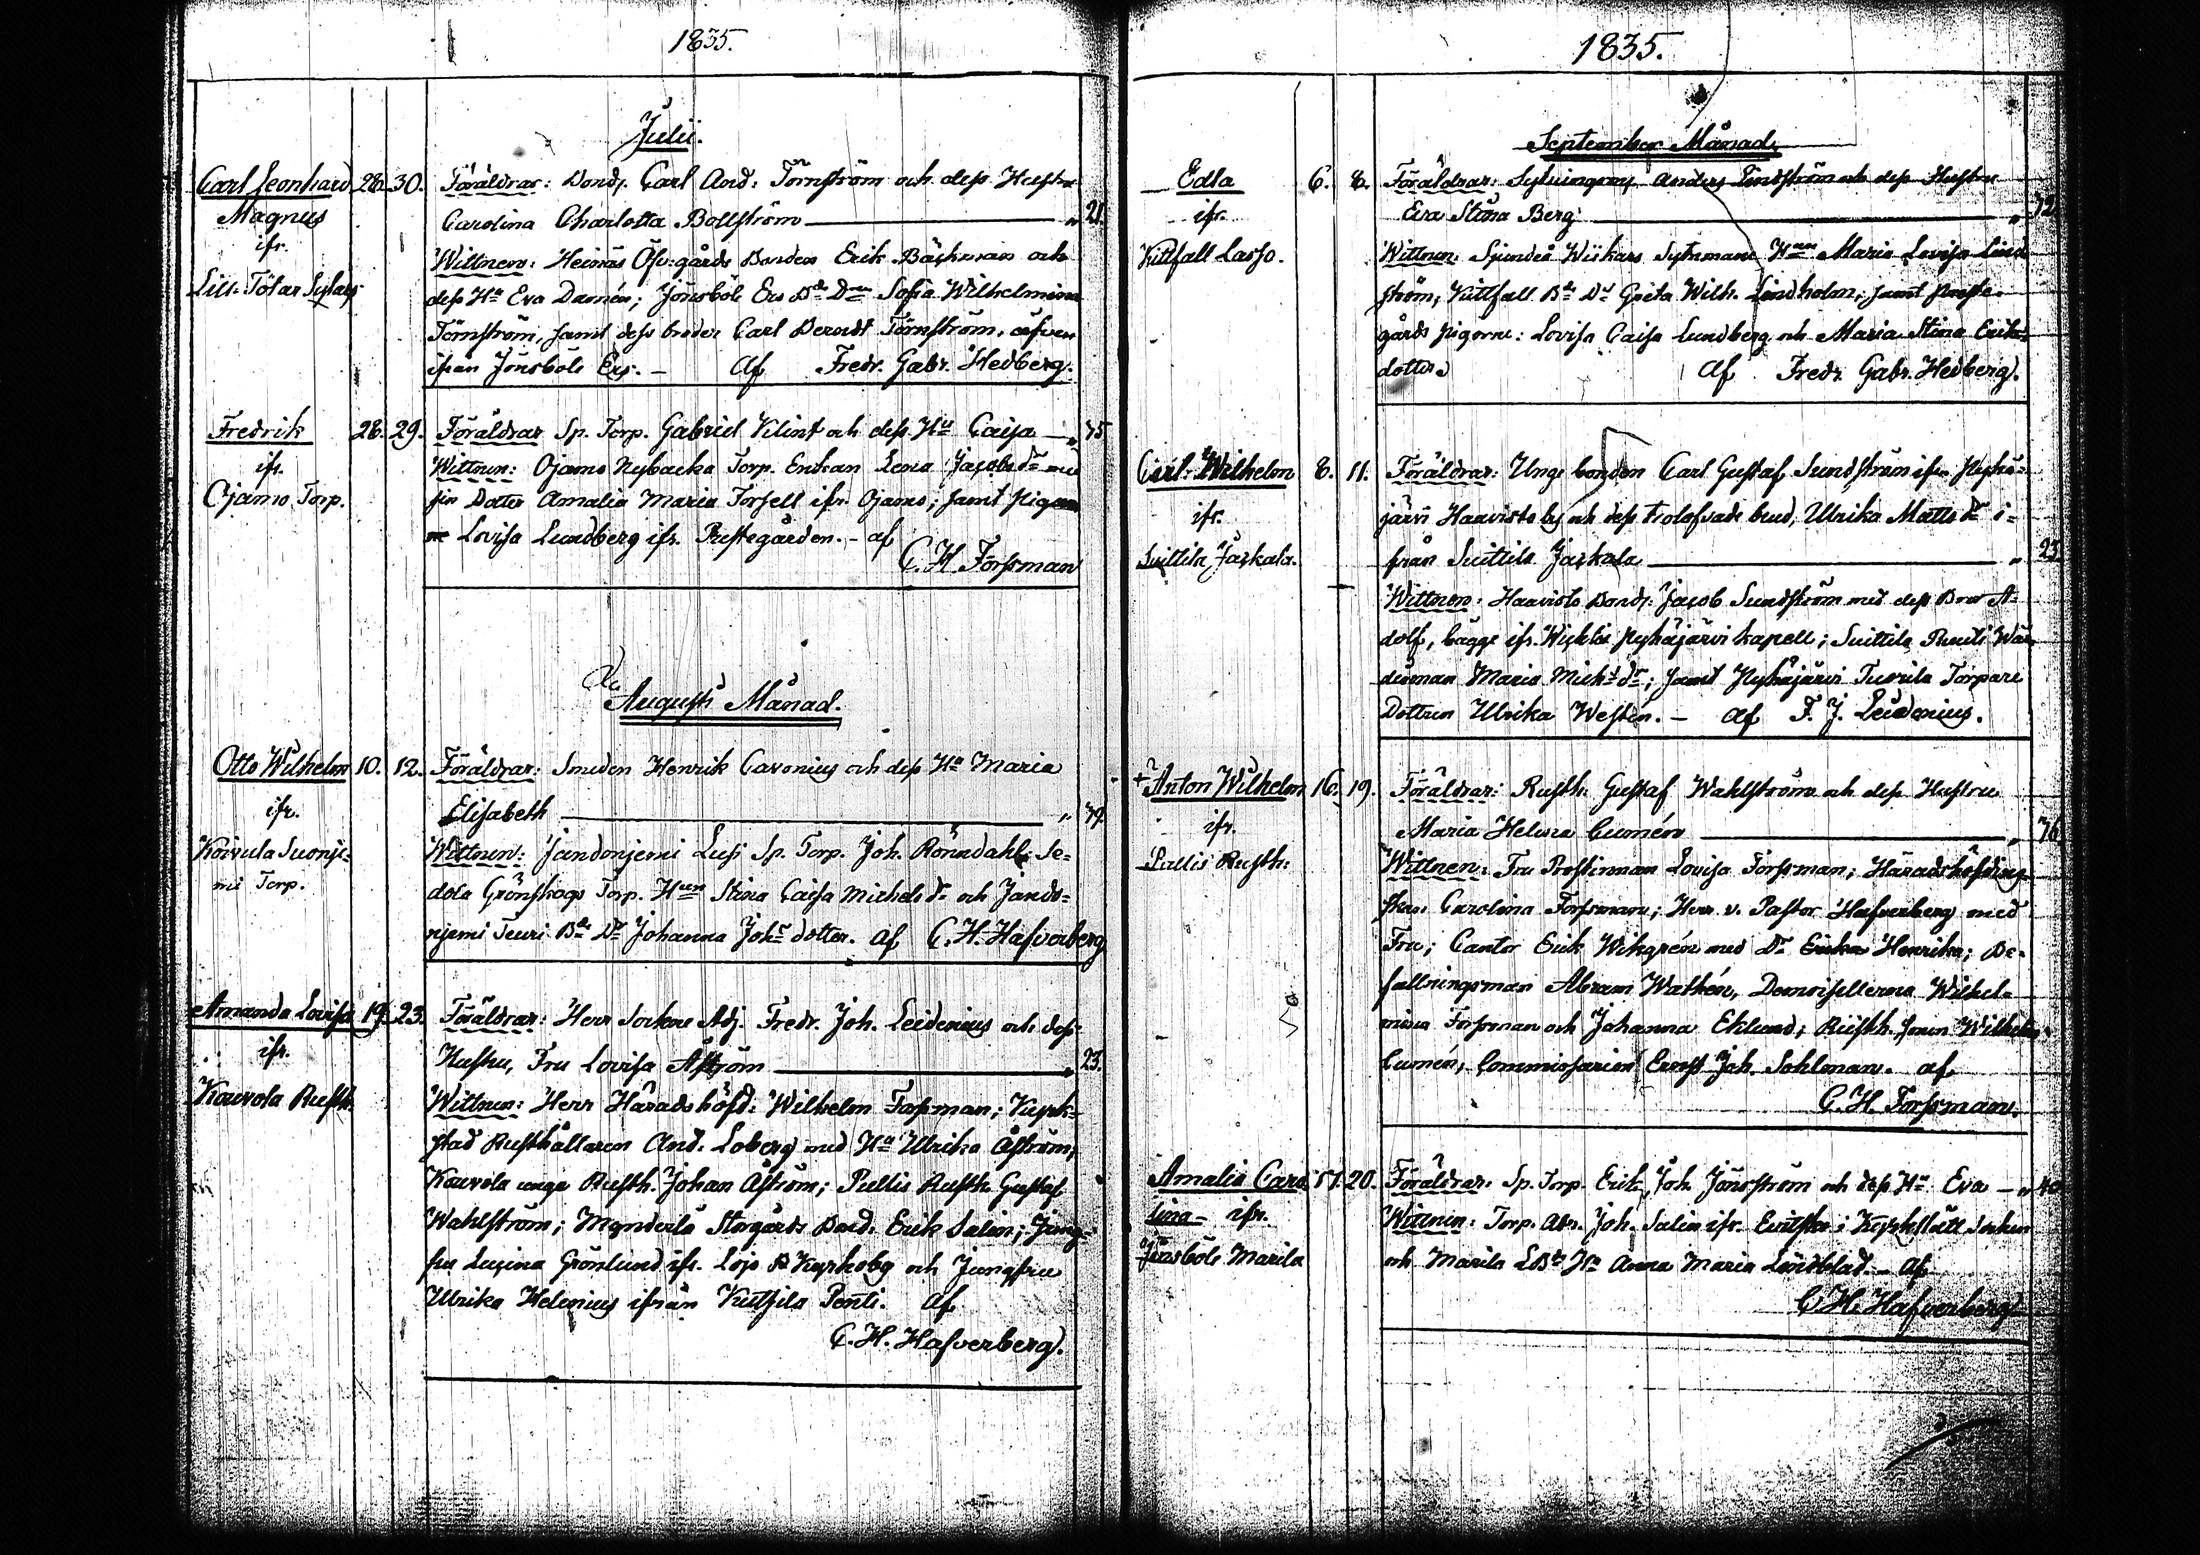 1835.
Julii.
Carl Leonhard 28. 30. Föräldrar: Bond. Carl And: Törnström och dess Hustru
Magnus Carolina Charlotta Bollström — „ 21.
ifr. Wittnen: Heinäs Öfv:gårds Bonden Erik Bäckman och
Lill-Tötar dess Hu Eva Damén; Jönsböle Ers Bde Dn Sofia Wilhelmina
Törnström, samt dess broder Carl Berndt Törnström, äfven
ifrån Jönsböle Ers. — Af Fredr. Gabr. Hedberg.
Fredrik 28. 29. Föräldrar Sp. Torp. Gabriel Klint och dess Hu Caisa — „ 45
ifr. Wittnen: Ojamo Nybacka Torp. Enkan Lena Jacobsdr med
Ojamo Torp. sin Dotter Amalia Maria Forsell ifr. Ojamo; samt Pigan
Lovisa Lundberg ifr. Prestegården. - af
C. H. Forssman
Augusti Månad.
Otto Wilhelm 10. 12. Föräldrar: Smeden Henrik Cavonius och dess Hu Maria
ifr. Elisabeth — „ 39.
Koivula Suonje- Wittnen: Jandonjemi Lusi Sp. Torp. Joh. Rönndahl; Se-
mi Torp. dola Grönskogs Torp. Hun Stina Caisa Michelsdr och Jando-
njemi Teuri Bde Dr Johanna Johs dotter. af C. H. Hafverberg
Amanda Lovisa 19. 23. Föräldrar: Herr Sockne Adj. Fredr. Joh. Leidenius och dess
ifr. Hustru, Fru Lovisa Åström — „ 23.
Kouvola Rusth. Wittnen: Herr Häradshöfd: Wilhelm Forssman; Kyrk-
stad Rusthållaren And. Loberg med Hu Ulrika Åström,
Kouvola unge Rusth. Johan Åström; Pullis Rusth. Gustaf
Wahlström; Mynderlä Storgårds Bond. Erik Salin; Jung-
fru Lusina Grönlund ifr. Lojo Kyrkoby och Jungfru
Ulrika Helenius ifrån Kutsila Penti. Af
C. H. Hafverberg.
1835.
September Månad.
Edla 6. 8. Föräldrar: Sytningsm Anders Lindström och dess Hustru
ifr. Eva Stina Berg — „ 72
Kittfall Lasso. Wittnen: Sjundeå Wiikars Sytnmans Hun Maria Lovisa Lind-
ström, Kittfall Bde Dr Greta Wilh. Lindholm; samt Preste-
gårds pigorne: Lovisa Caisa Lundberg och Maria Stina Eriks-
dotter. Af Fredr. Gabr. Hedberg.
Carl Wilhelm 8. 11. Föräldrar: Unge bonden Carl Gustaf Sundström ifr. Pyhä-
ifr. järvi Haavisto by och dess trolofvade brud, Ulrika Mattsdr i-
Suittila Jaskala. från Suittila Jaskala — „ 23.
Wittnen: Haavisto Bond. Jacob Sundström med dess Bror A-
dolf, bägge ifr. Wichtis Pyhäjärvi kapell; Suittila Penti Wär-
dinnan Maria Michsdr; samt Pyhäjärvi Tuorila Torpare
Dottren Ulrika Westén. — af F. J. Leidenius.
+ Anton Wilhelm 16. 19. Föräldrar: Rusth. Gustaf Wahlström och dess Hustru
ifr. Maria Helena Cumén — „ 36.
Pullis Rusth: Wittnen: Fru Prostinnan Lovisa Forssman; Häradshöfding-
skan Carolina Forssman; Herr v. Pastor Hafverberg med
Fru; Cantor Erik Wikgrén med Dr Henrika; Be-
fallningsman Abram Wathén, Demoisellerna Wilhel-
mina Forssman och Johanna Eklund; Rusth. sonen Wilhelm
Cumén, Commissarien Ernst Joh. Sohlman. af
C. H. Forssman.
Amalia Caro- 17. 20. Föräldrar. Sp. Torp. Erik Joh. Jönsström och dess Hu Eva — „ 40
lina ifr. Wittnen: Torp. Abr. Joh. Salin ifr. Evitskog i Kyrkslätt Socken
Jönsböle Marila och Marila LBde Hu Anna Maria Lindblad. - Af
C. H. Hafverberg